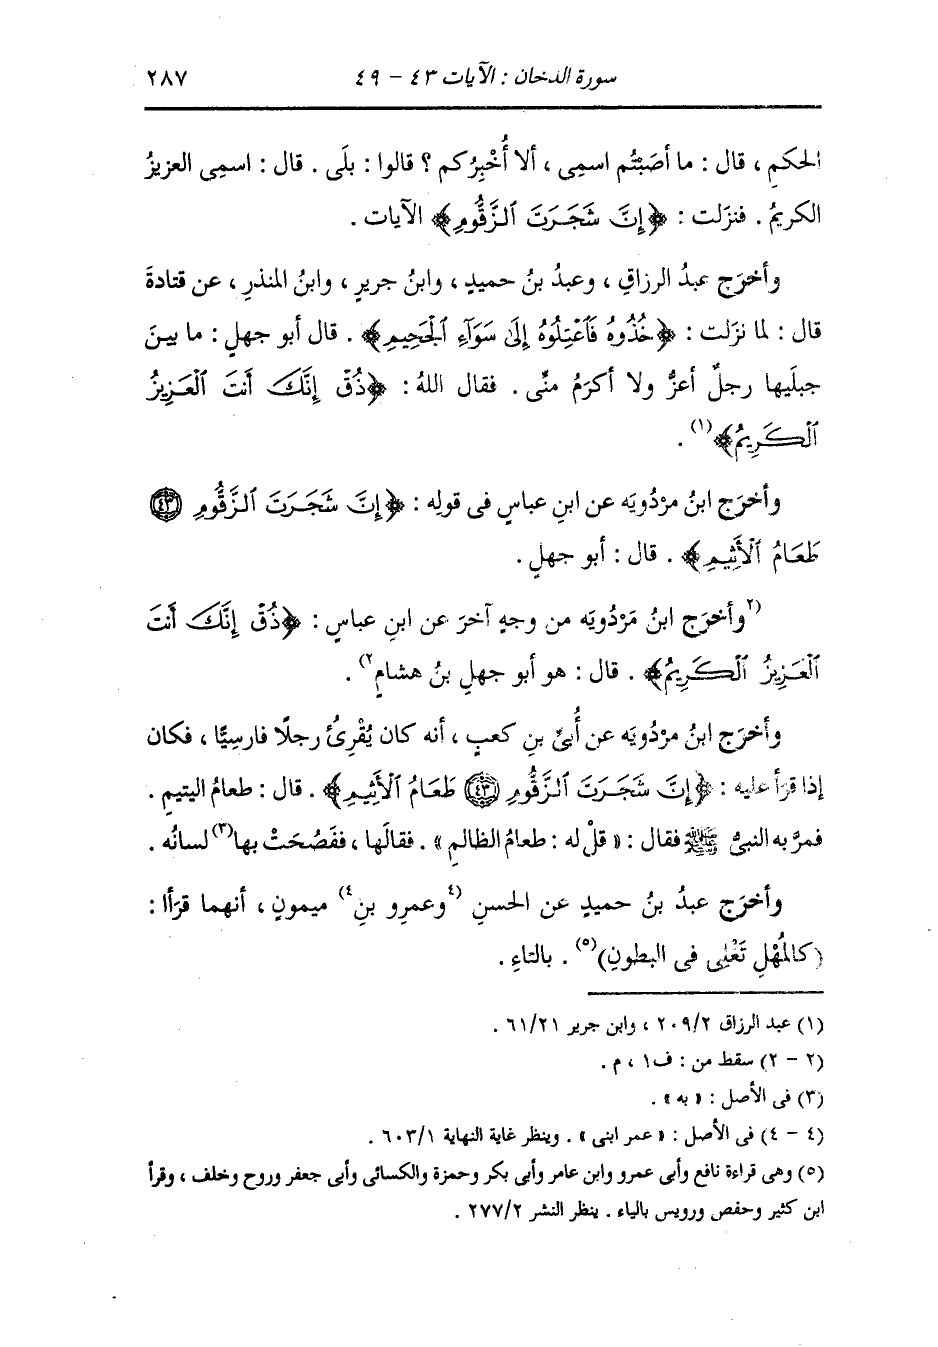 سورة الدخان : الآيات ٤٣ - ٤٩ ٢٨٧
الحكمِ ، قال : ما أصَبْتُم اسمِى ، ألا أُخْبِرُكم ؟ قالوا : بلَى . قال : اسمِى العزيزُ
الكريمُ . فنزَلت : ﴿إِنَّ شَجَرَتَ ٱلزَّقُّومِ﴾ الآيات .
وأخرَج عبدُ الرزاقِ ، وعبدُ بنُ حميدٍ ، وابنُ جريرٍ ، وابنُ المنذرِ ، عن قتادةَ
قال : لما نزَلت : ﴿خُذُوهُ فَٱعْتِلُوهُ إِلَىٰ سَوَآءِ ٱلْجَحِيمِ﴾ . قال أبو جهلٍ : ما بينَ
جبلَيها رجلٌ أعزُّ ولا أكرَمُ منِّى . فقال اللهُ : ﴿ذُقْ إِنَّكَ أَنتَ ٱلْعَزِيزُ
ٱلْكَرِيمُ﴾(١) .
وأخرَج ابنُ مرْدُويَه عن ابنِ عباسٍ فى قولِه : ﴿إِنَّ شَجَرَتَ ٱلزَّقُّومِ ۝٤٣
طَعَامُ ٱلْأَثِيمِ﴾ . قال : أبو جهلٍ .
(٢وأخرَج ابنُ مَرْدُويَه من وجهٍ آخرَ عن ابنِ عباسٍ : ﴿ذُقْ إِنَّكَ أَنتَ
ٱلْعَزِيزُ ٱلْكَرِيمُ﴾ . قال : هو أبو جهلِ بنُ هشامٍ٢) .
وأخرَج ابنُ مرْدُويَه عن أُبىِّ بنِ كعبٍ ، أنه كان يُقْرِئُ رجلًا فارسِيًّا ، فكان
إذا قرَأ عليه : ﴿إِنَّ شَجَرَتَ ٱلزَّقُّومِ ۝٤٣ طَعَامُ ٱلْأَثِيمِ﴾ . قال : طعامُ اليتيمِ .
فمرَّ به النبىُّ ﷺ فقال : « قلْ له : طعامُ الظالمِ » . فقالَها ، ففَصُحَتْ بها(٣) لسانُه .
وأخرَج عبدُ بنُ حميدٍ عن الحسنِ (٤وعمرِو بنِ٤) ميمونٍ ، أنهما قرَأا :
(كالمُهْلِ تَغْلِى فى البطونِ)(٥) . بالتاءِ .
(١) عبد الرزاق ٢٠٩/٢ ، وابن جرير ٦١/٢١ .
(٢ - ٢) سقط من : ف١ ، م .
(٣) فى الأصل : « به » .
(٤ - ٤) فى الأصل : « عمر ابنى » . وينظر غاية النهاية ٦٠٣/١ .
(٥) وهى قراءة نافع وأبى عمرو وابن عامر وأبى بكر وحمزة والكسائى وأبى جعفر وروح وخلف ، وقرأ
ابن كثير وحفص ورويس بالياء . ينظر النشر ٢٧٧/٢ .